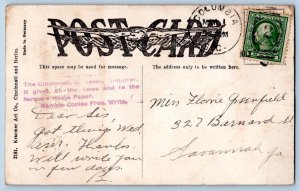 POST CARD
This space may be used for message.
The address only to be written here.
COLUMBIA
S.C.
The Cincinnati, O. Weekly Enquirer,
It gives all the news and is the
Farmer's Home Paper.
Sample Copies Free. Write
Dear Sis.
Got things Wed
Will write you
in few days
Miss Florrie Greenfield
327 Barnard St
Savannah Ga
Kraemer Art Co., Cincinnati and Berlin.
Made in Germany